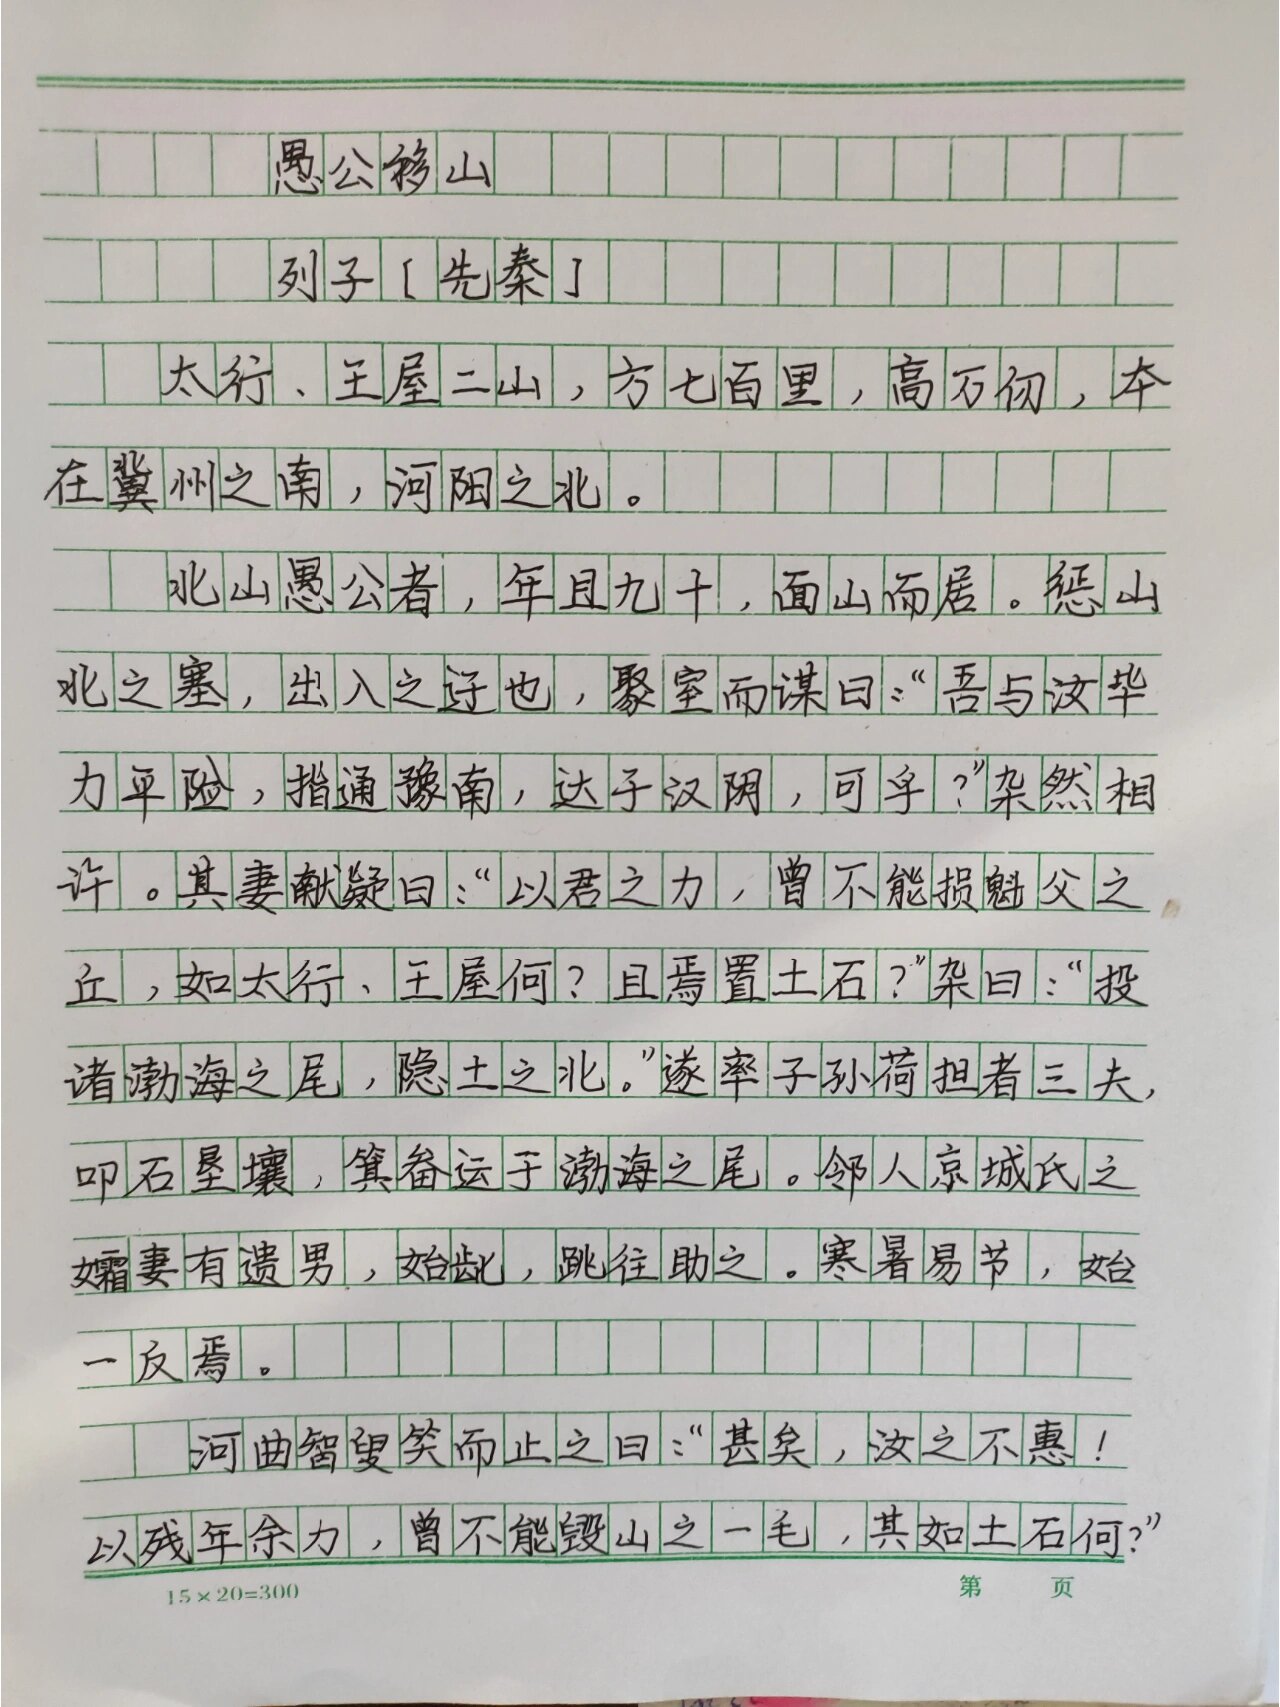 愚公移山
列子[先秦]
太行、王屋二山，方七百里，高万仞，本
在冀州之南，河阳之北。
北山愚公者，年且九十，面山而居。惩山
北之塞，出入之迂也，聚室而谋曰：“吾与汝毕
力平险，指通豫南，达于汉阴，可乎？”杂然相
许。其妻献疑曰：“以君之力，曾不能损魁父之
丘，如太行、王屋何？且焉置土石？”杂曰：“投
诸渤海之尾，隐土之北。”遂率子孙荷担者三夫，
叩石垦壤，箕畚运于渤海之尾。邻人京城氏之
孀妻有遗男，始龀，跳往助之。寒暑易节，始
一反焉。
河曲智叟笑而止之曰：“甚矣，汝之不惠！
以残年余力，曾不能毁山之一毛，其如土石何？”
15×20=300
第 页